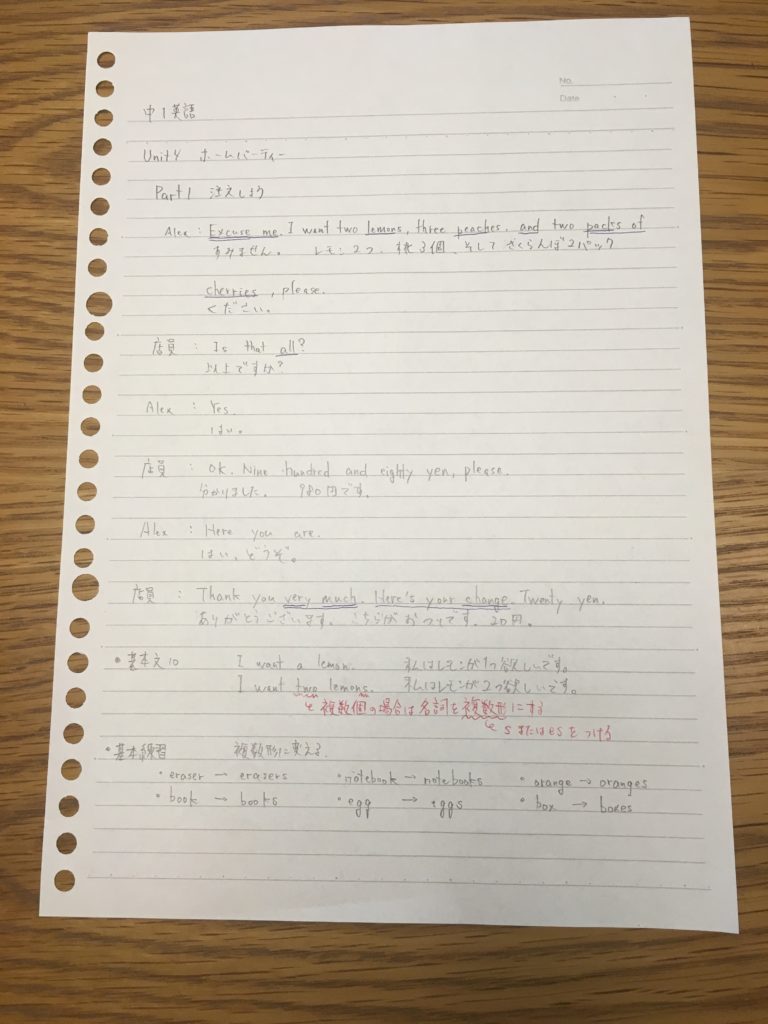 No.
Date
中1英語
Unit4 ホームパーティー
Part1 注文しよう
Alex : Excuse me. I want two lemons, three peaches, and two packs of
すみません。 レモン2つ、桃3個、そしてさくらんぼ2パック
cherries, please.
ください。
店員 : Is that all?
以上ですか?
Alex : Yes.
はい。
店員 : OK. Nine hundred and eighty yen, please.
分かりました。 980円です。
Alex : Here you are.
はい、どうぞ。
店員 : Thank you very much. Here's your change. Twenty yen.
ありがとうございます。こちらがおつりです。20円。
・基本文10 I want a lemon. 私はレモンが1つ欲しいです。
I want two lemons. 私はレモンが2つ欲しいです。
複数個の場合は名詞を複数形にする
sまたはesをつける
・基本練習 複数形に変える
・eraser → erasers ・notebook → notebooks ・orange → oranges
・book → books ・egg → eggs ・box → boxes